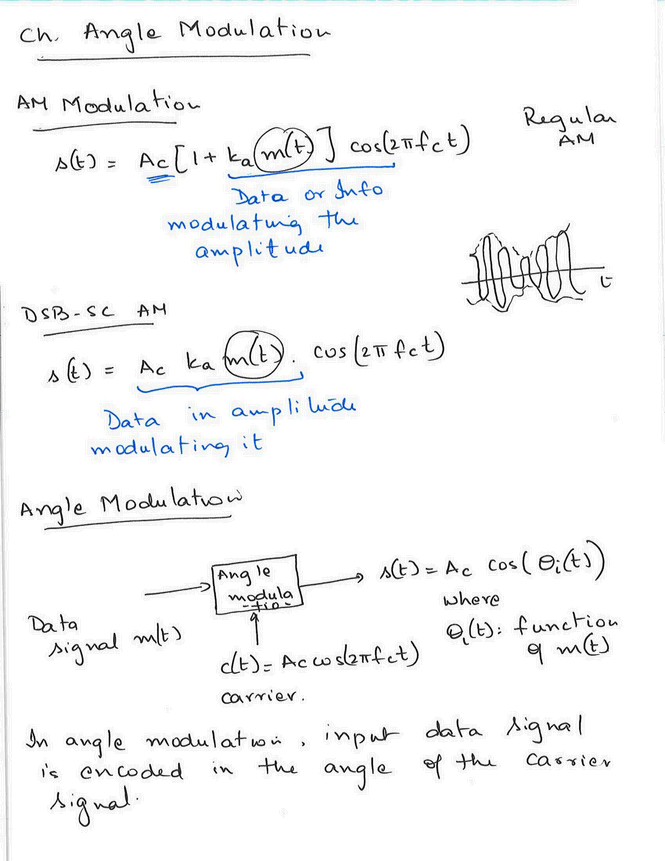 Ch. Angle Modulation
AM Modulation
s(t) = Ac [1 + ka m(t)] cos(2πfct)
Regular
AM
Data or Info
modulating the
amplitude
t
DSB-SC AM
s(t) = Ac ka m(t). cos(2πfct)
Data in amplitude
modulating it
Angle Modulation
Angle
modula
-tion-
s(t) = Ac cos(θi(t))
where
θi(t): function
of m(t)
Data
signal m(t)
c(t) = Ac cos(2πfct)
carrier.
In angle modulation, input data signal
is encoded in the angle of the carrier
signal.